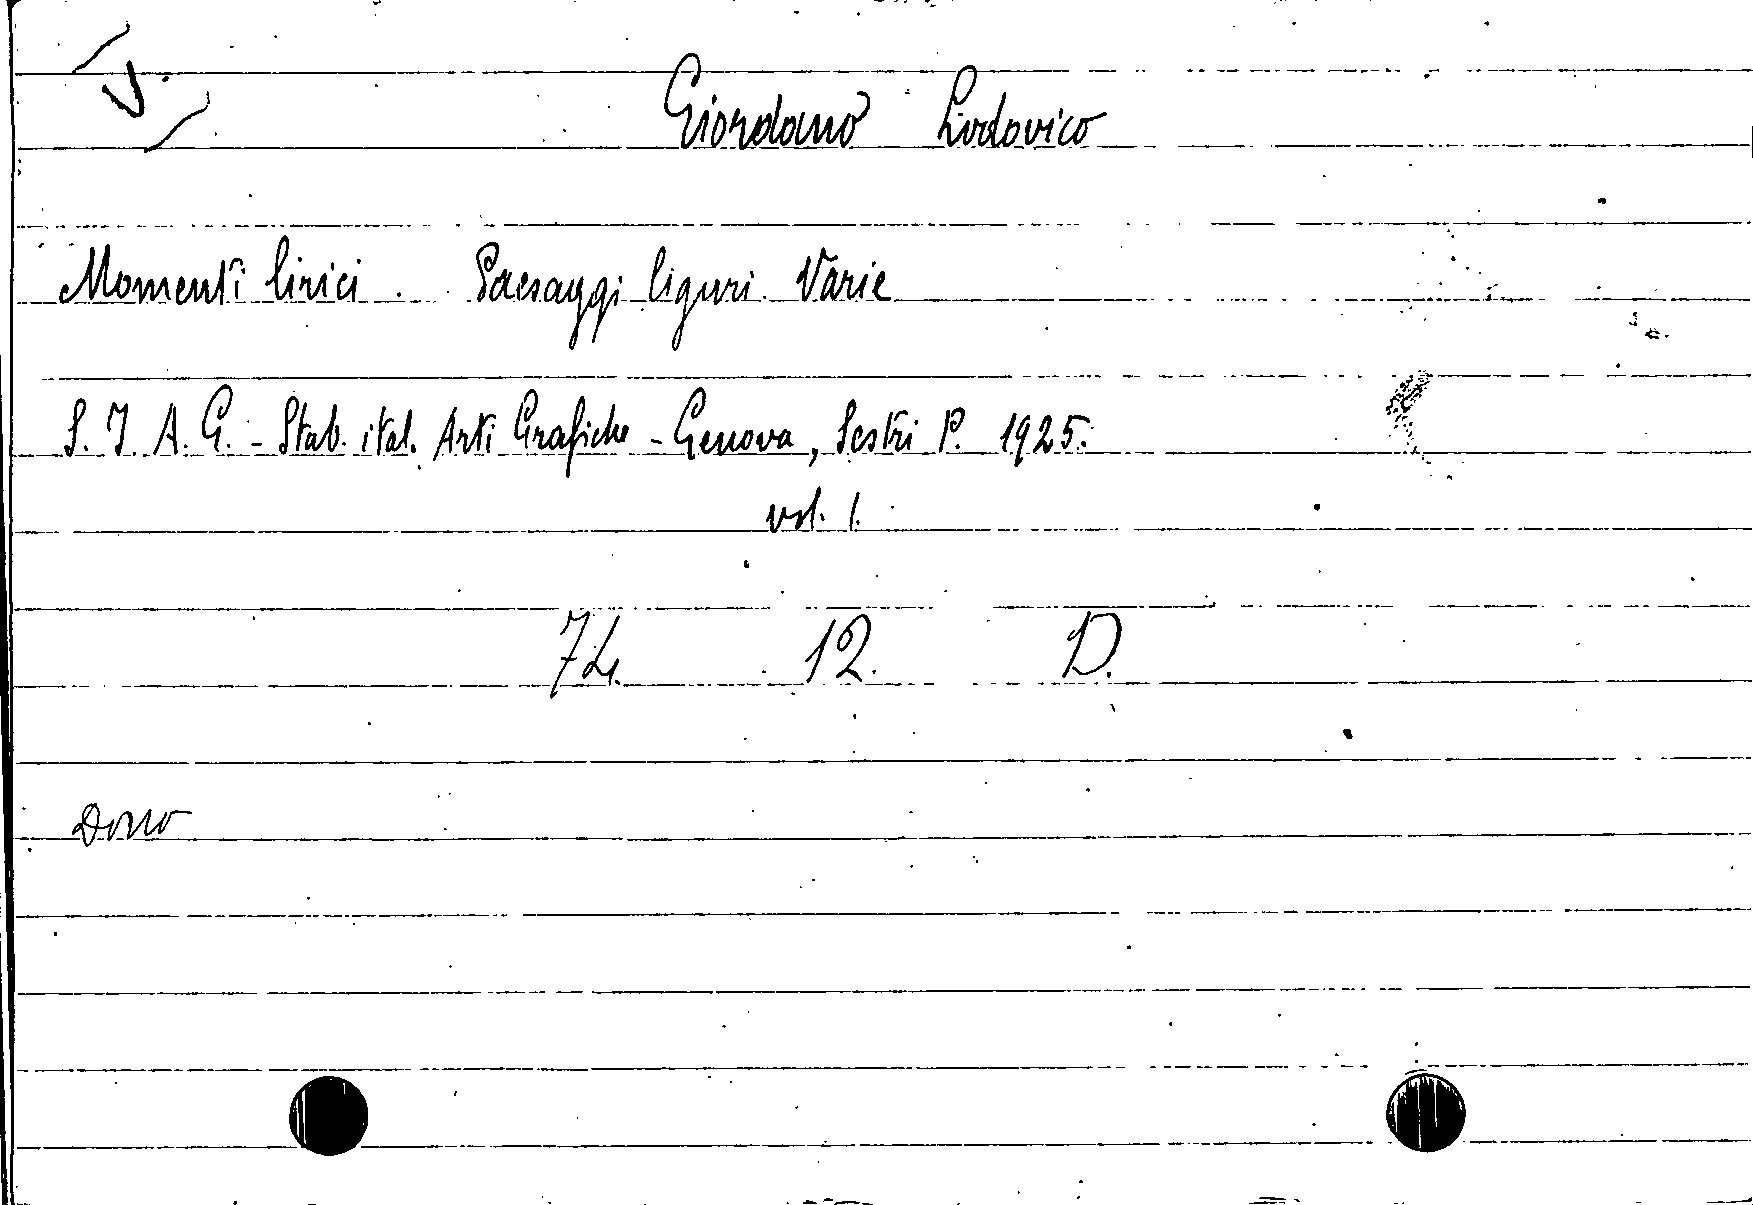 V.
Giordano Lodovico
Momenti lirici. Paesaggi liguri. Varie
S. I. A. G. - Stab. ital. Arti Grafiche - Genova, Sestri P. 1925.
vol. 1.
74. 12. D.
Dono